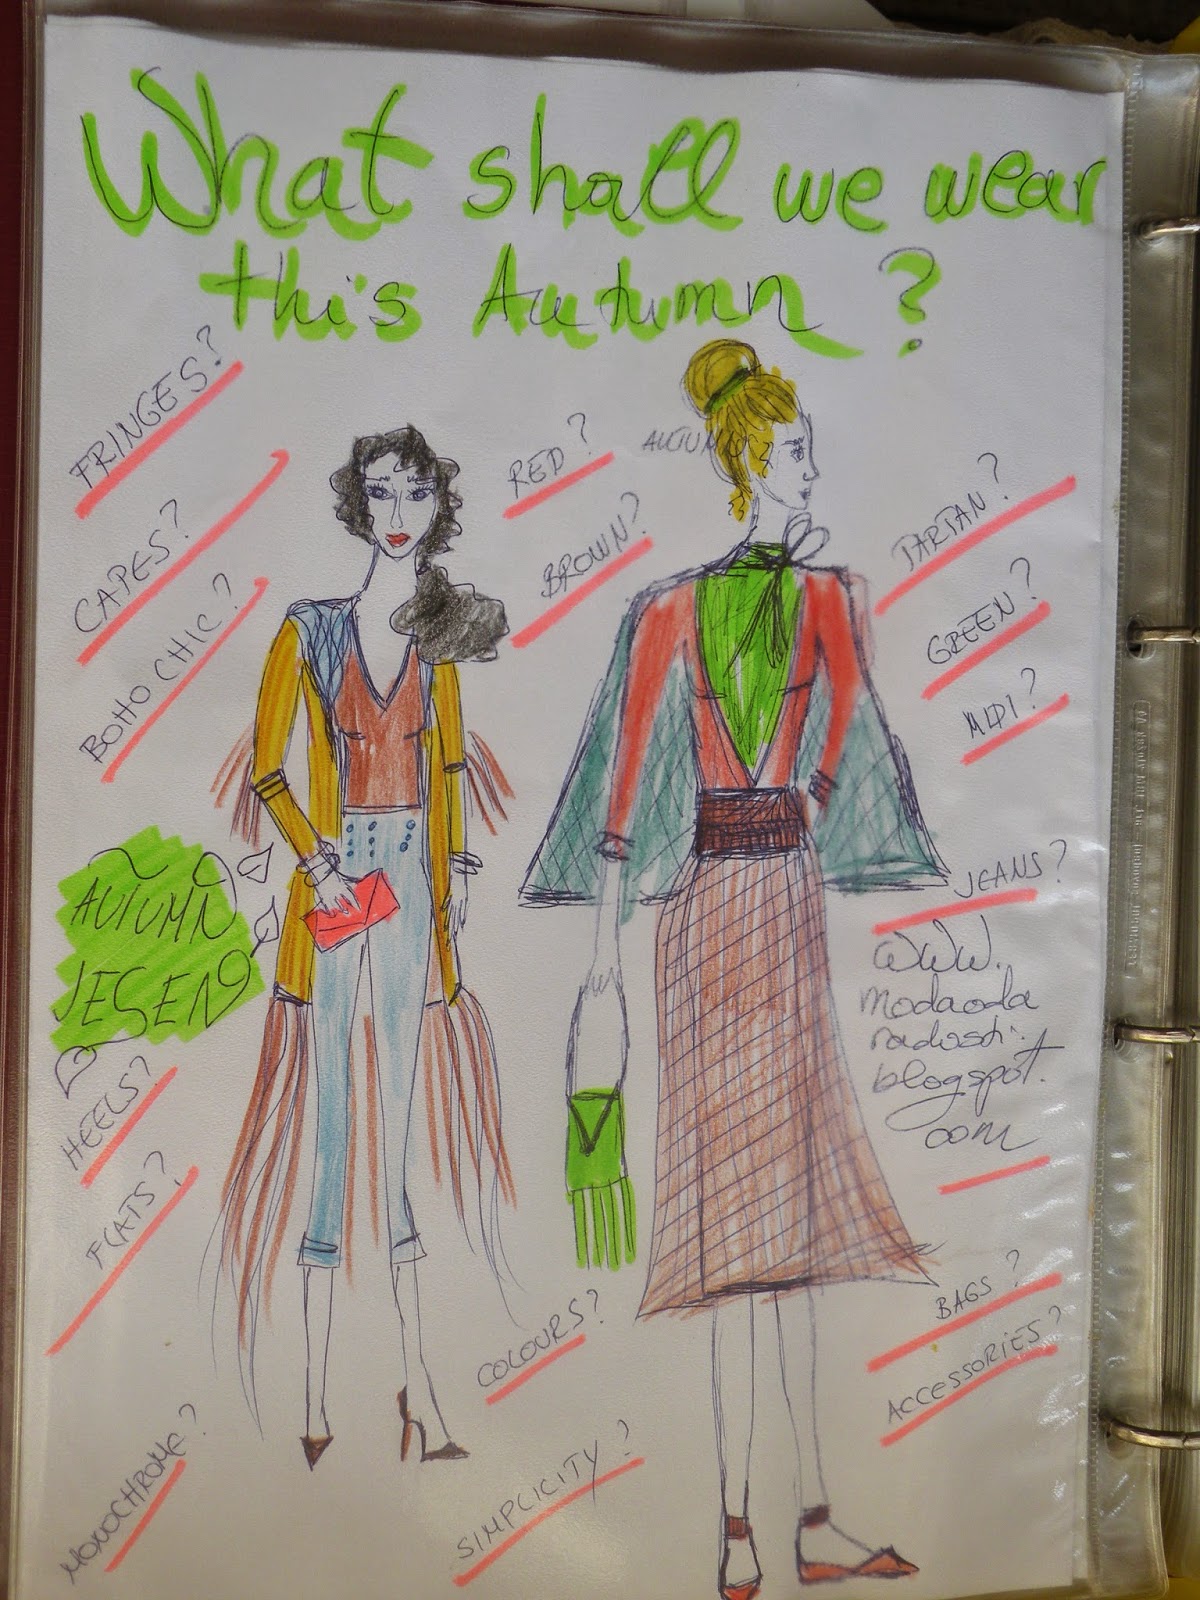 What shall we wear
this Autumn ?
FRINGES?
CAPES?
BOHO CHIC?
RED?
BROWN?
AUTUM
TARTAN?
GREEN?
MIDI?
JEANS?
AUTUMN
JESEN
HEELS?
FLATS?
MONOCHROME?
COLOURS?
SIMPLICITY?
www.
modaoda
radosti.
blogspot.
com
BAGS?
ACCESSORIES?